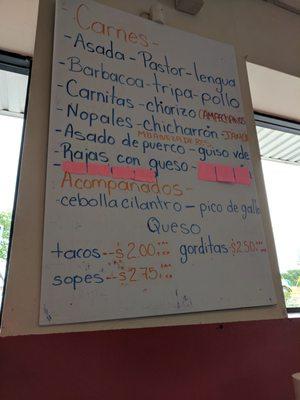 Carnes-
-Asada-Pastor-lengua
-Barbacoa-tripa-pollo
-Carnitas-chorizo (CAMPECHANOS
-Nopales-chicharrón-
-Asado de puerco-guiso vde
-Rajas con queso-
Acompañados-
-cebolla cilantro - pico de gallo
Queso
tacos--$2.00 gorditas $2.50
sopes--$2.75